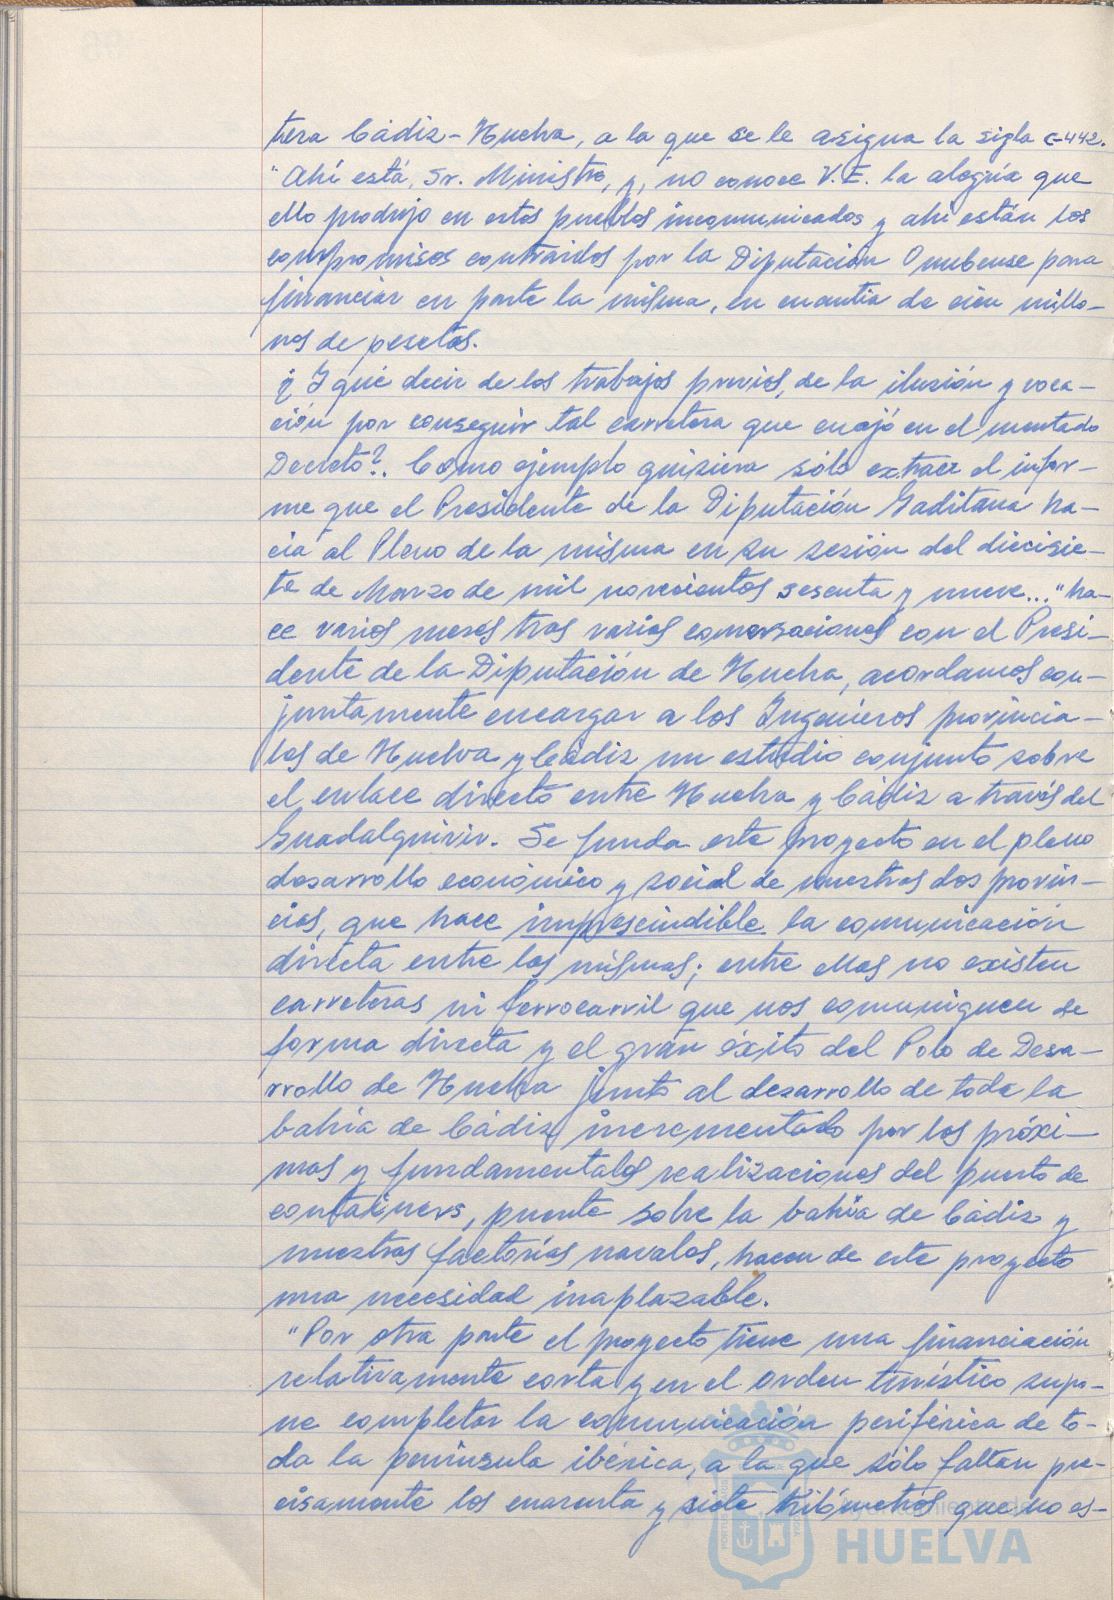 tera Cádiz-Huelva, a la que se le asigna la sigla C-442.
"Ahí está, Sr. Ministro, y, no conoce V.E. la alegría que
ello produjo en estos pueblos incomunicados y ahí están los
compromisos contraidos por la Diputación Onubense para
financiar en parte la misma, en cuantia de cien millo-
nes de pesetas.
¿Y qué decir de los trabajos previos, de la ilusión y voca-
ción por conseguir tal carretera que cuajó en el mentado
Decreto?. Como ejemplo quisiera sólo extraer el infor-
me que el Presidente de la Diputación Gaditana ha-
cia al Pleno de la misma en su sesión del diecisie-
te de Marzo de mil novecientos sesenta y nueve..." ha-
ce varios meses tras varias conversaciones con el Presi-
dente de la Diputación de Huelva, acordamos con-
juntamente encargar a los Ingenieros provincia-
les de Huelva y Cádiz un estudio conjunto sobre
el enlace directo entre Huelva y Cádiz a través del
Guadalquivir. Se funda este proyecto en el pleno
desarrollo económico y social de nuestras dos provin-
cias, que hace imprescindible la comunicación
directa entre las mismas; entre ellas no existen
carreteras ni ferrocarril que nos comuniquen de
forma directa y el gran éxito del Polo de Desa-
rrollo de Huelva junto al desarrollo de toda la
bahía de Cádiz incrementado por los próxi-
mas y fundamentales realizaciones del puerto de
containers, puente sobre la bahía de Cádiz y
nuestras factorías navales, hacen de este proyecto
una necesidad inaplazable.
"Por otra parte el proyecto tiene una financiación
relativamente corta y en el orden turístico supo-
ne completar la comunicación periférica de to-
da la península ibérica, a la que sólo faltan pre-
cisamente los cuarenta y siete kilómetros que no es-
Ayuntamiento de
HUELVA